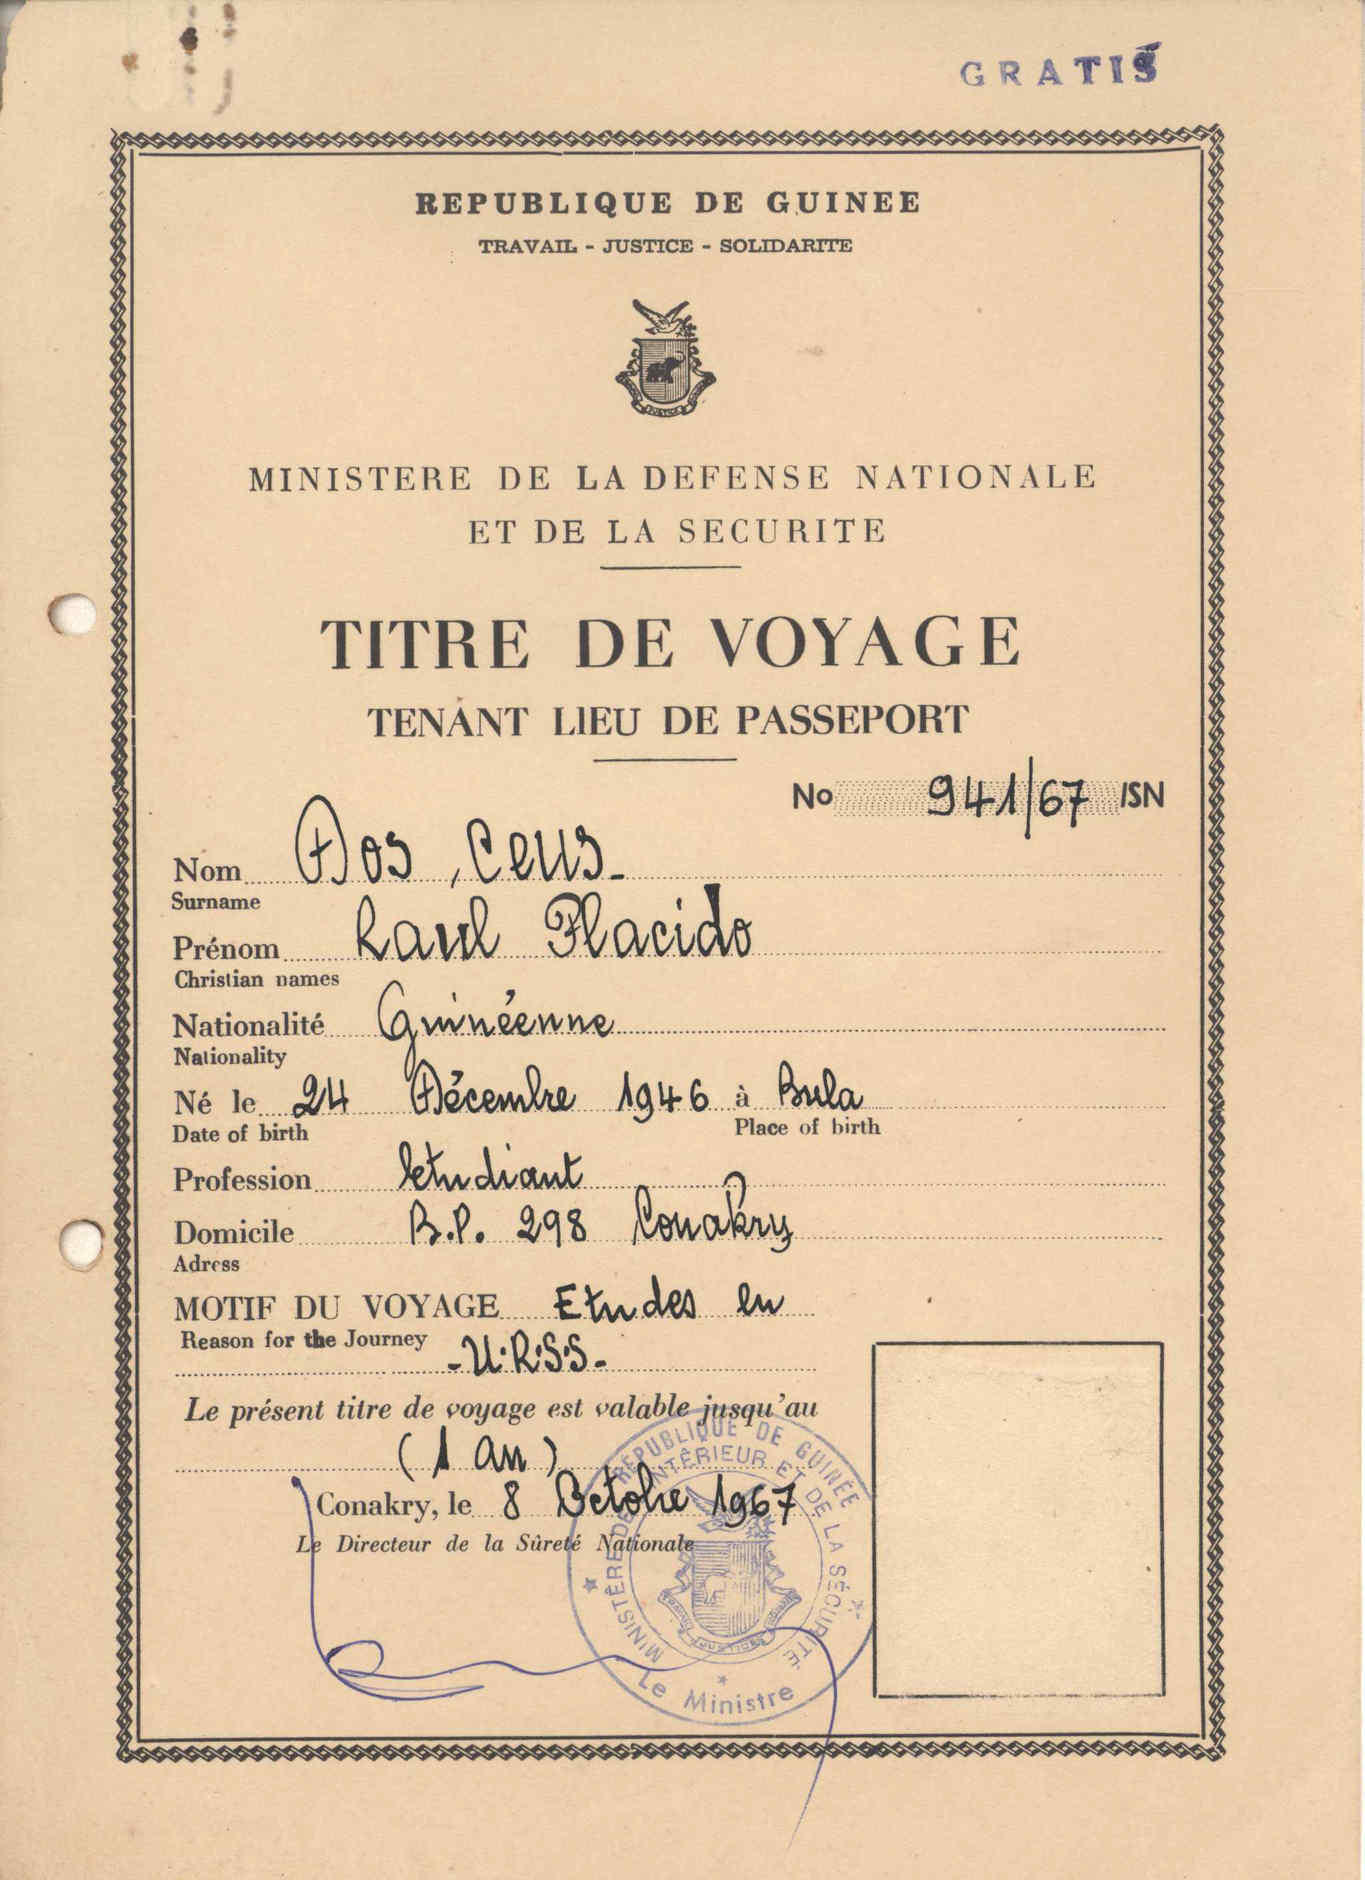 GRATIS
REPUBLIQUE DE GUINEE
TRAVAIL - JUSTICE - SOLIDARITE
MINISTERE DE LA DEFENSE NATIONALE
ET DE LA SECURITE
TITRE DE VOYAGE
TENANT LIEU DE PASSEPORT
No 941/67 /SN
Nom Dos, Ceus-
Surname
Prénom Raul Placido
Christian names
Nationalité Guinéenne
Nationality
Né le 24 Décembre 1946 à Bula
Date of birth Place of birth
Profession etudiant
Domicile B.P. 298 Conakry
Adress
MOTIF DU VOYAGE Etudes en
Reason for the Journey
-U.R.S.S-
Le présent titre de voyage est valable jusqu'au
(1 an)
Conakry, le 8 Octobre 1967
Le Directeur de la Sûreté Nationale
REPUBLIQUE DE GUINÉE
MINISTÈRE DE L'INTÉRIEUR ET DE LA SÉCURITÉ
Le Ministre